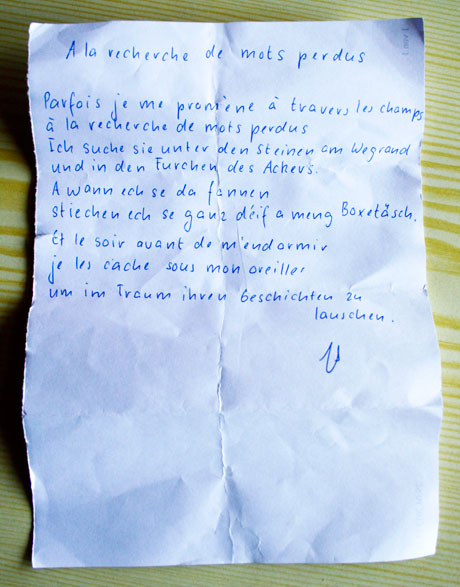 A la recherche de mots perdus
Parfois je me promène à travers les champs
à la recherche de mots perdus
Ich suche sie unter den Steinen am Wegrand
und in den Furchen des Ackers.
A wann ech se da fannen
stiechen ech se ganz déif a meng Boxetäsch.
Et le soir avant de m'endormir
je les cache sous mon oreiller
um im Traum ihren Geschichten zu
lauschen.